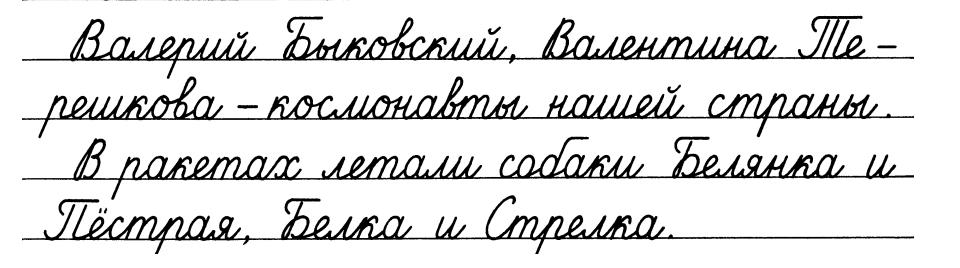 Валерий Быковский, Валентина Те-
решкова - космонавты нашей страны.
В ракетах летали собаки Белянка и
Пёстрая, Белка и Стрелка.